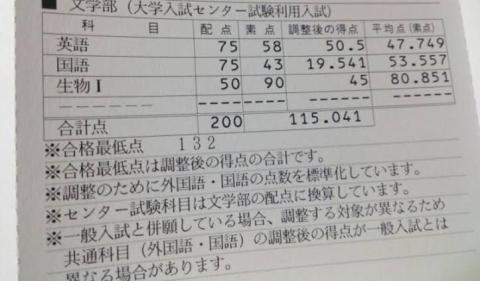 ■ 文学部（大学入試センター試験利用入試）
科 目 配 点 素 点 調整後の得点 平均点（素点）
英語 75 58 50.5 47.749
国語 75 43 19.541 53.557
生物Ⅰ 50 90 45 80.851
------ ----- ----- ------ ------
合計点 200 115.041
※合格最低点 132
※合格最低点は調整後の得点の合計です。
※調整のために外国語・国語の点数を標準化しています。
※センター試験科目は文学部の配点に換算しています。
※一般入試と併願している場合、調整する対象が異なるため
共通科目（外国語・国語）の調整後の得点が一般入試とは
異なる場合があります。